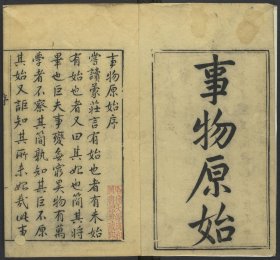 事物原始
事物原始序
嘗讀蒙莊言有始也者有未始
有始也者又曰其始也簡其將
畢也巨夫事變無窮庶物有萬
學者不察其簡孰知其巨不原
其始又詎知其所未始哉此事
序